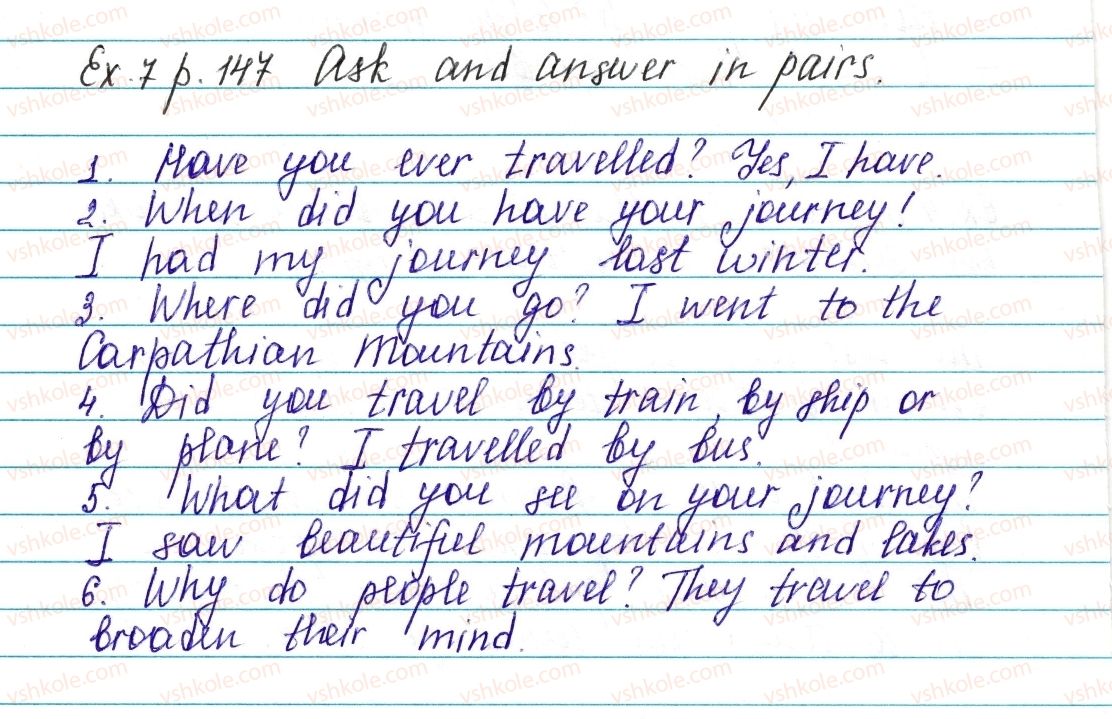 Ex. 7 p. 147 Ask and answer in pairs.
1. Have you ever travelled? Yes, I have.
2. When did you have your journey!
I had my journey last winter.
3. Where did you go? I went to the
Carpathian Mountains.
4. Did you travel by train, by ship or
by plane? I travelled by bus.
5. What did you see on your journey?
I saw beautiful mountains and lakes.
6. Why do people travel? They travel to
broaden their mind.
vshkole.com